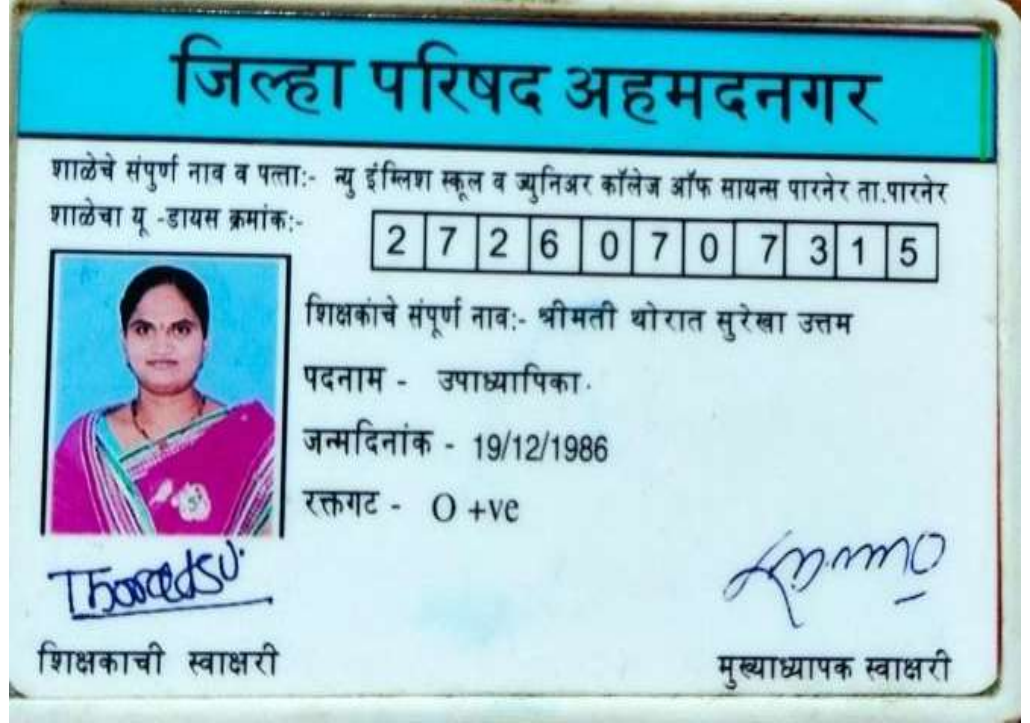 जिल्हा परिषद अहमदनगर
शाळेचे संपुर्ण नाव व पत्ता:- न्यु इंग्लिश स्कूल व ज्युनिअर कॉलेज ऑफ सायन्स पारनेर ता.पारनेर
शाळेचा यू -डायस क्रमांक:- 27260707315
शिक्षकांचे संपूर्ण नाव:- श्रीमती थोरात सुरेखा उत्तम
पदनाम - उपाध्यापिका.
जन्मदिनांक - 19/12/1986
रक्तगट - O +ve
ThoratSU.
शिक्षकाची स्वाक्षरी
मुख्याध्यापक स्वाक्षरी